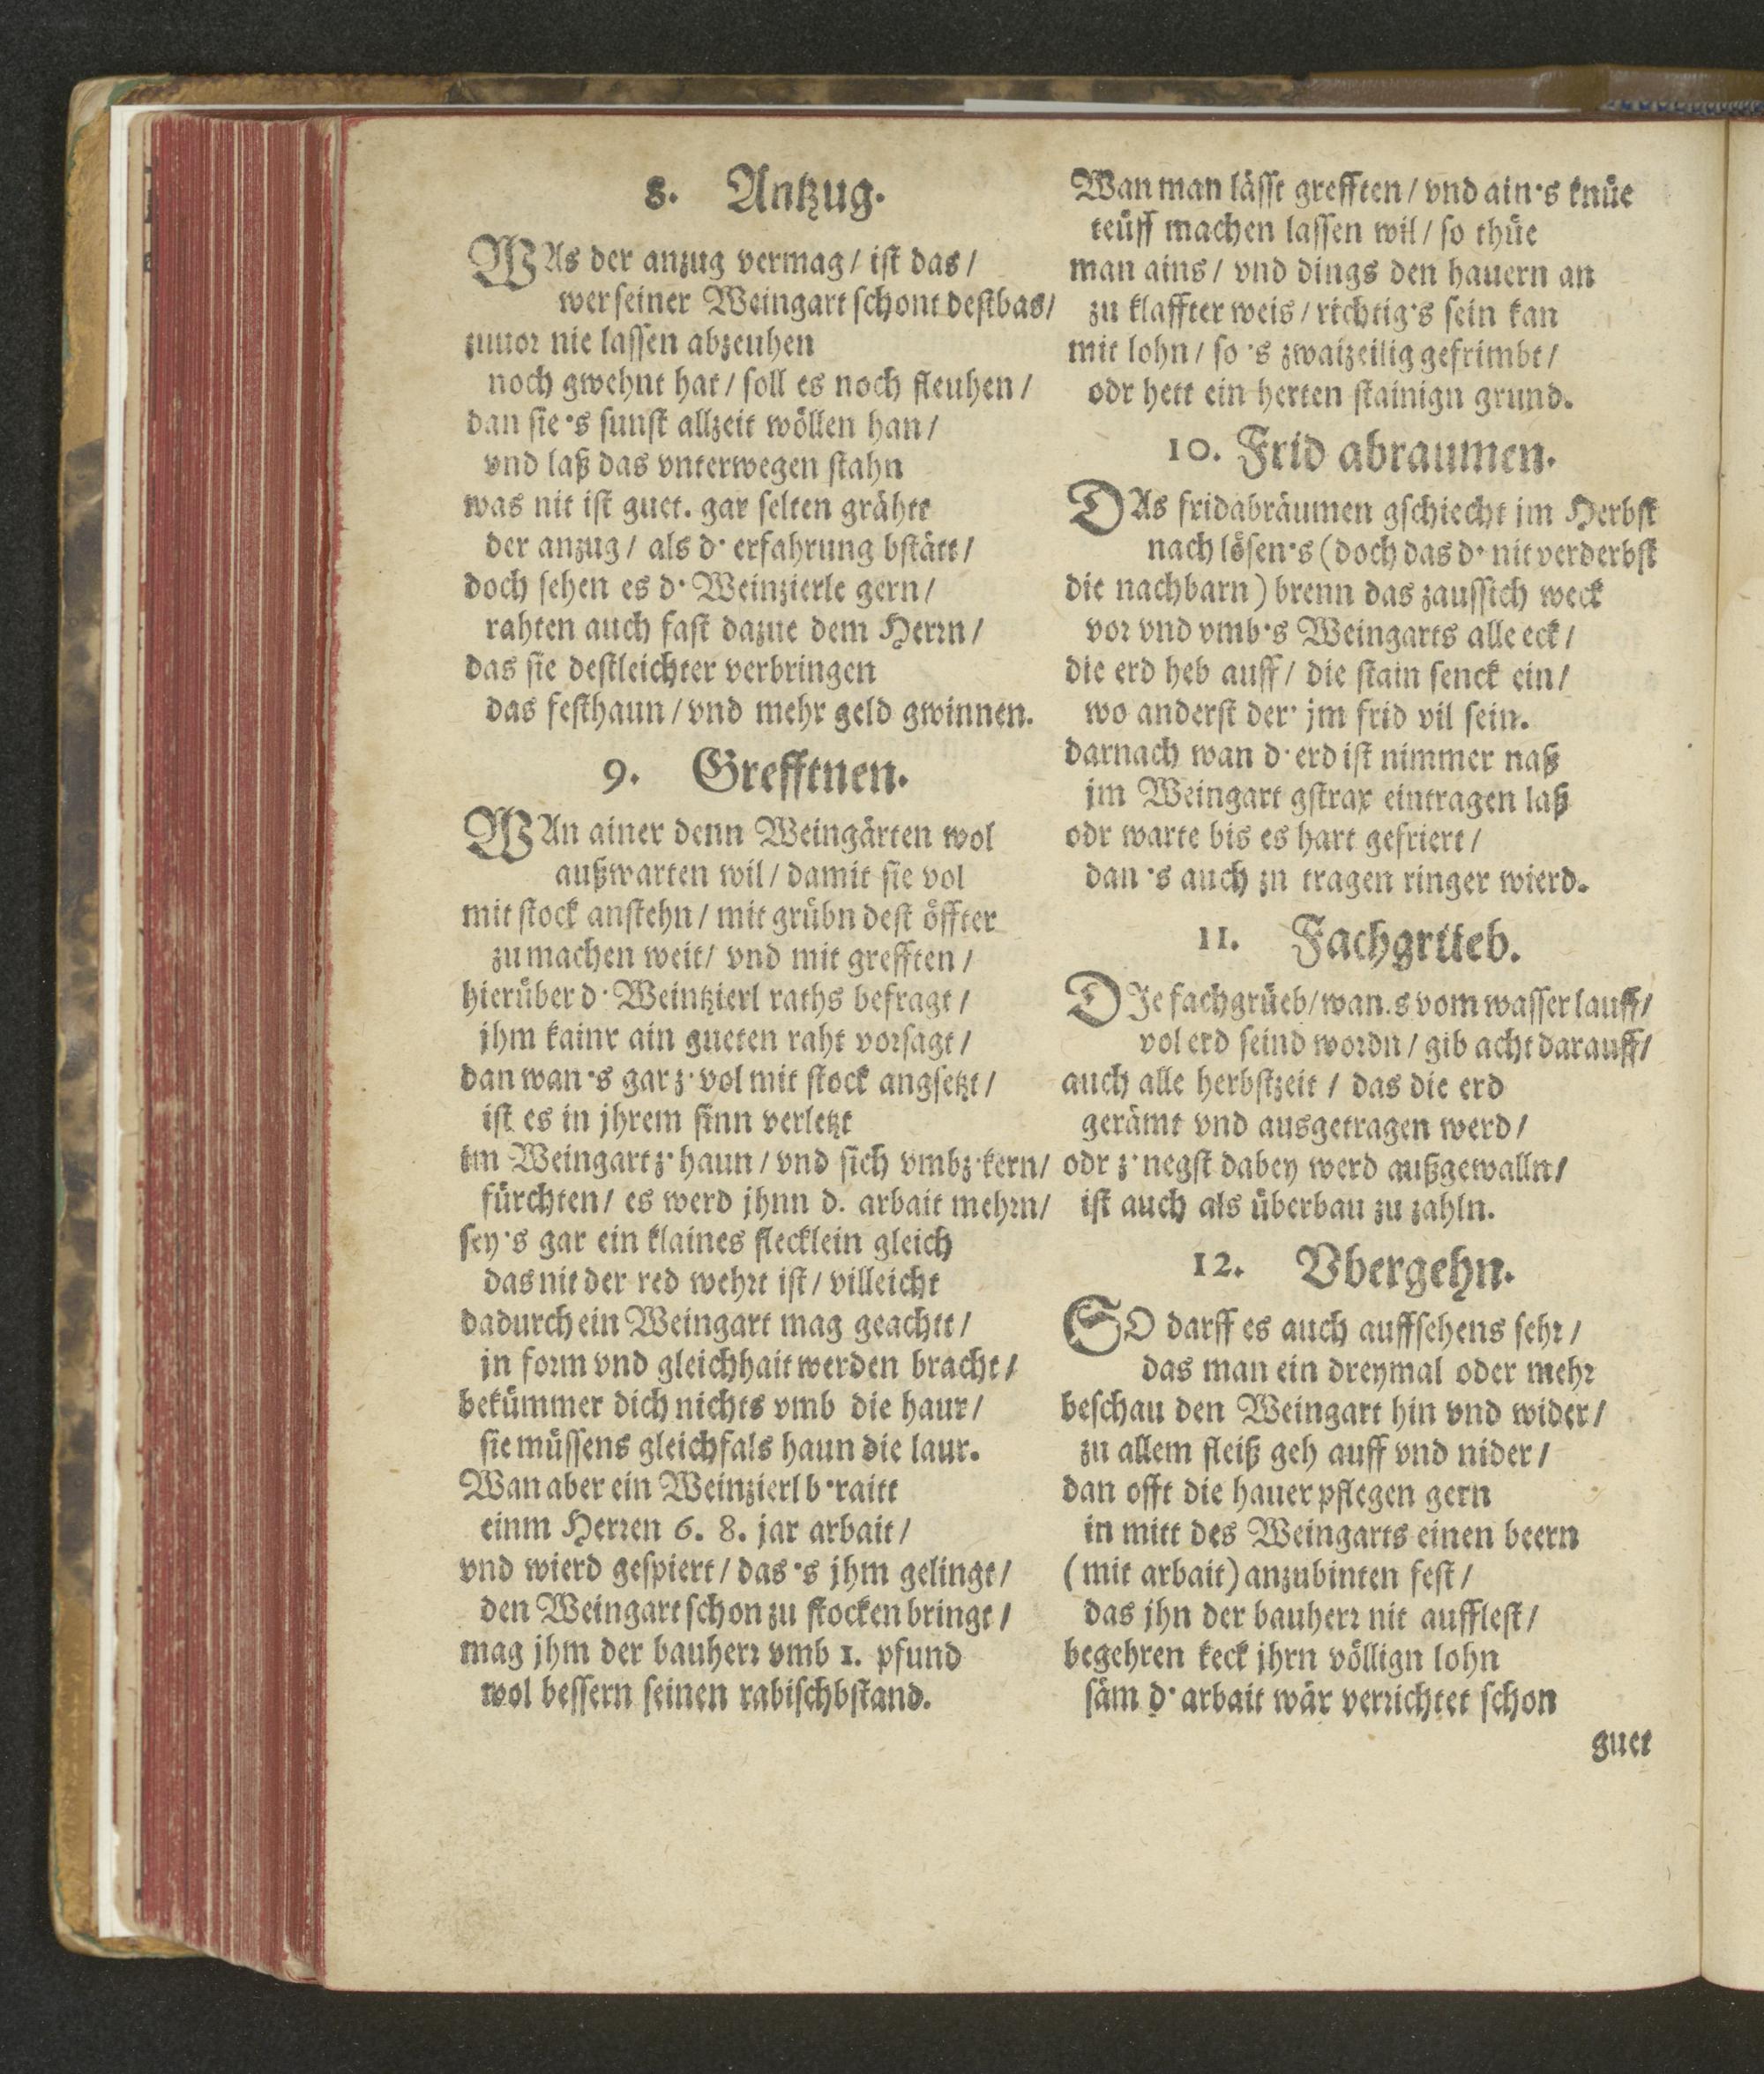 8. Antzug.
WAs der anzug vermag / ist das /
wer seiner Weingart schont destbas /
zuuor nie lassen abzeuhen
noch gwehnt hat / soll es noch fleuhen /
dan sie's sunst allzeit wöllen han /
vnd laß das vnterwegen stahn
was nit ist guet. gar selten grähtt
der anzug / als d' erfahrung bstätt /
doch sehen es d' Weinzierle gern /
rahten auch fast dazue dem Herrn /
das sie destleichter verbringen
das festhaun / vnd mehr geld gwinnen.
9. Grefftnen.
WAn ainer denn Weingärten wol
außwarten wil / damit sie vol
mit stock anstehn / mit grübn dest öffter
zu machen weit / vnd mit grefften /
hierüber d' Weintzierl raths befragt /
jhm kainr ain gueten raht vorsagt /
dan wan's gar z' vol mit stock angsetzt /
ist es in jhrem sinn verletzt
im Weingart z' haun / vnd sich vmbz'kern /
fürchten / es werd jhnn d. arbait mehrn /
sey's gar ein klaines flecklein gleich
das nit der red wehrt ist / villeicht
dadurch ein Weingart mag geachtt /
in form vnd gleichhait werden bracht /
bekümmer dich nichts vmb die haur /
sie müssens gleichfals haun die laur.
Wan aber ein Weinzierl b'raitt
einm Herren 6. 8. jar arbait /
vnd wierd gespiert / das's jhm gelingt /
den Weingart schon zu stocken bringt /
mag jhm der bauherr vmb 1. pfund
wol bessern seinen rabischbstand.
Wan man lässt grefften / vnd ain's knüe
teüff machen lassen wil / so thüe
man ains / vnd dings den hauern an
zu klaffter weis / richtig's sein kan
mit lohn / so 's zwaizeilig gefrimbt /
odr hett ein herten stainign grund.
10. Frid abraumen.
DAs fridabräumen gschiecht im Herbst
nach lösen's (doch das d' nit verderbst
die nachbarn) brenn das zaussich weck
vor vnd vmb's Weingarts alle eck /
die erd heb auff / die stain senck ein /
wo anderst der' jm frid vil sein.
darnach wan d' erd ist nimmer naß
jm Weingart gstrax eintragen laß
odr warte bis es hart gefriert /
dan 's auch zu tragen ringer wierd.
11. Fachgrüeb.
DIe fachgrüeb / wan.s vom wasser lauff /
vol erd seind wordn / gib acht darauff /
auch alle herbstzeit / das die erd
gerämt vnd ausgetragen werd /
odr z' negst dabey werd außgewalln /
ist auch als überbau zu zahln.
12. Vbergehn.
SO darff es auch auffsehens sehr /
das man ein dreymal oder mehr
beschau den Weingart hin vnd wider /
zu allem fleiß geh auff vnd nider /
dan offt die hauer pflegen gern
in mitt des Weingarts einen beern
(mit arbait) anzubinten fest /
das jhn der bauherr nit aufflest /
begehren keck jhrn völlign lohn
säm d' arbait wär verrichtet schon
guet